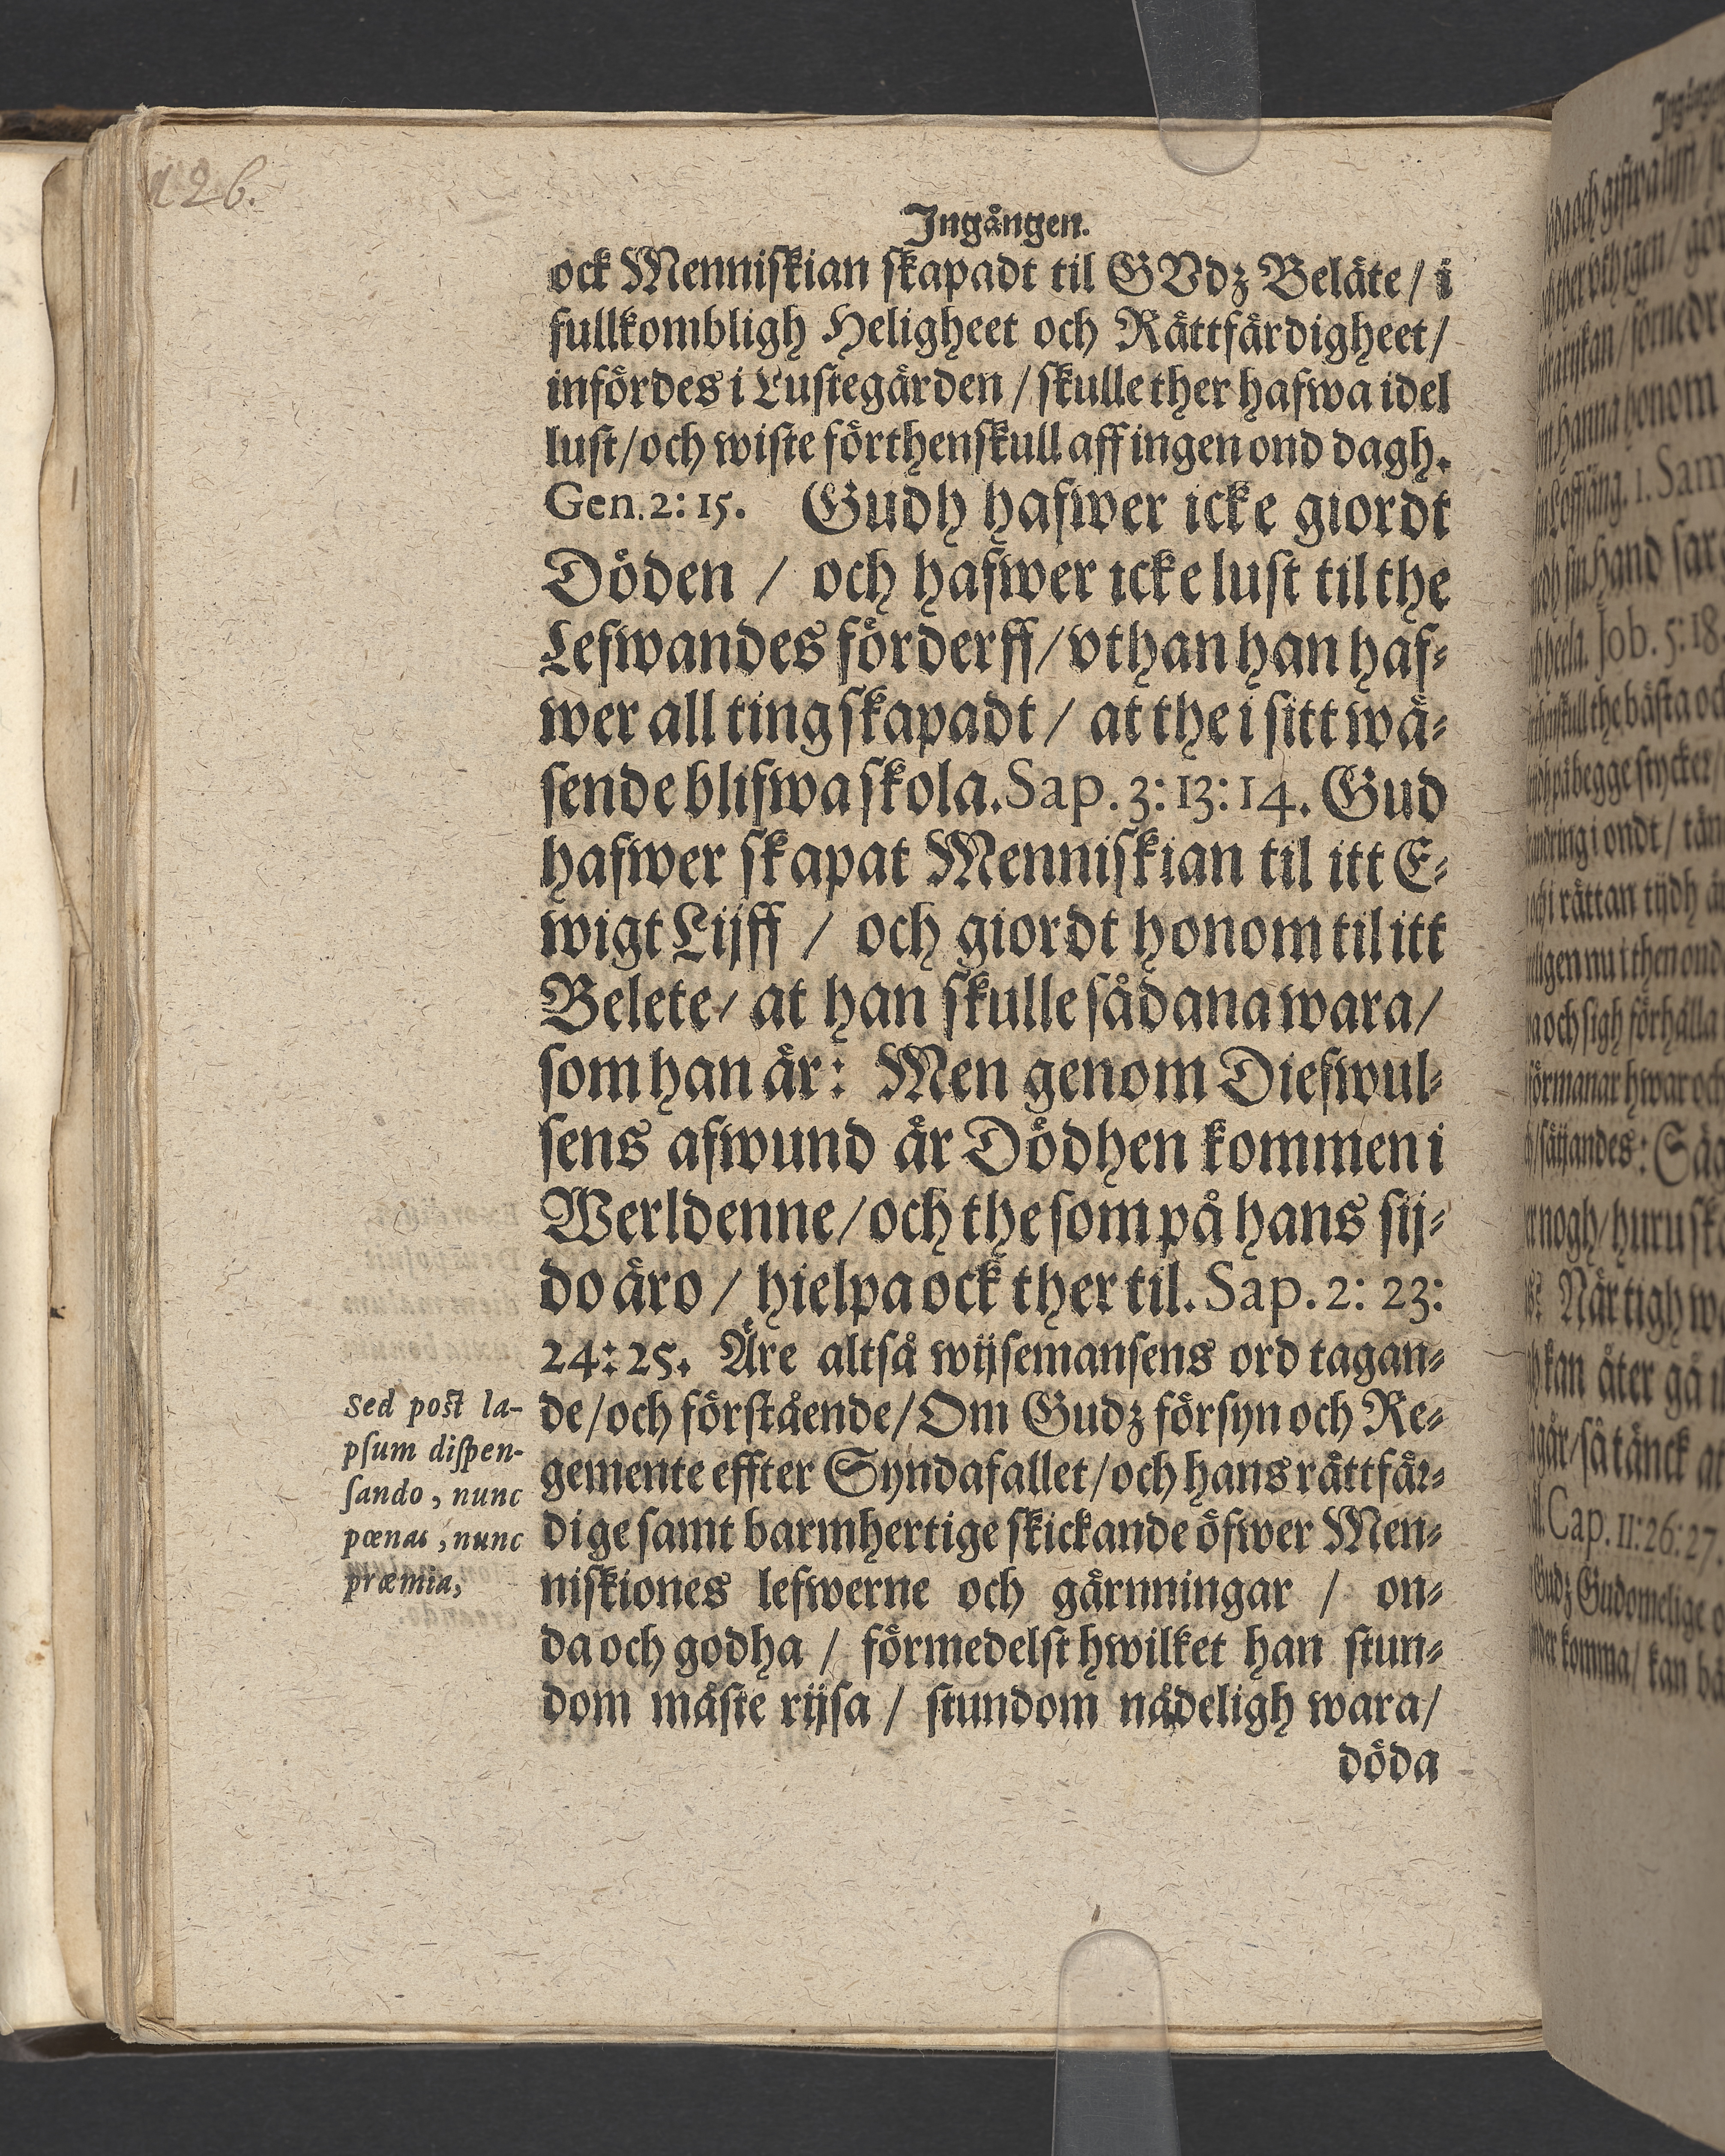 126.
Ingången.
ock Menniskian skapadt til GVdz Beläte / i
fullkombligh Heligheet och Rättfärdigheet /
infördes i Lustegården / skulle ther hafwa idel
lust / och wiste förthenskull aff ingen ond dagh.
Gen. 2: 15. Gudh hafwer icke giordt
Döden / och hafwer icke lust til the
Lefwandes förderff / vthan han haf-
wer all ting skapadt / at the i sitt wä-
sende blifwa skola. Sap. 3: 13: 14. Gud
hafwer skapat Menniskian til itt E-
wigt Lijff / och giordt honom til itt
Belete / at han skulle sådana wara /
som han är: Men genom Diefwul-
sens afwund är Dödhen kommen i
Werldenne / och the som på hans sij-
do äro / hielpa ock ther til. Sap. 2: 23:
24: 25. Äre altså wijsemansens ord tagan-
de / och förstående / Om Gudz försyn och Re-
gemente effter Syndafallet / och hans rättfär-
dige samt barmhertige skickande öfwer Men-
niskiones lefwerne och gärnningar / on-
da och godha / förmedelst hwilket han stun-
dom måste rijsa / stundom nådeligh wara /
döda
Sed post la-
psum dispen-
sando, nunc
pœnas, nunc
præmia,
1. Sam
Job. 5: 18
Cap. 11: 26: 27.